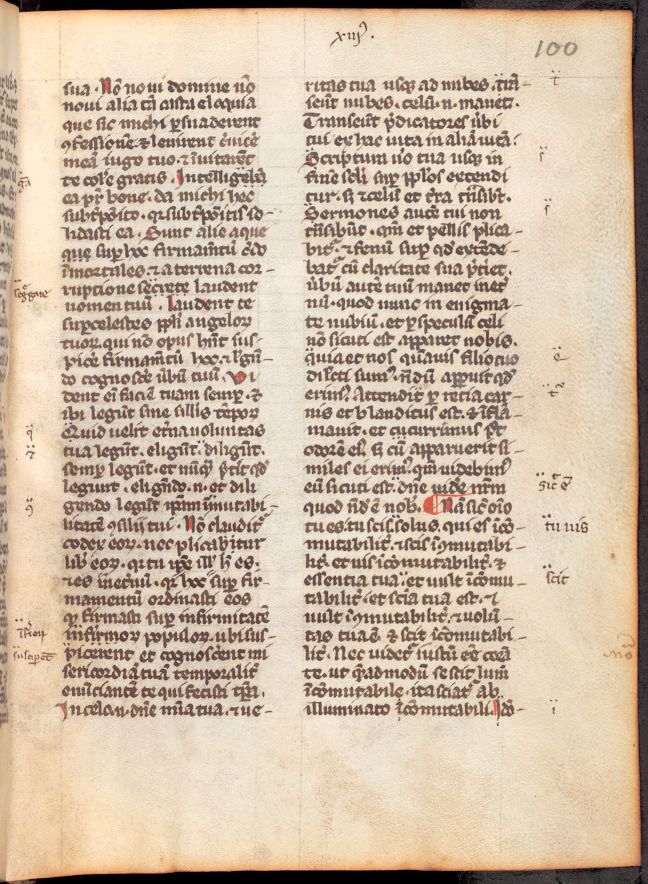 xiijꝰ.
100
sua. Nõ noui domine nõ
noui alia tã casta eloquia
que sic michi ꝑsuaderent
ꝯfessionē. & lenirent ceruicē
meã iugo tuo. & ĩuitarēt
te colere gratis. Intelligã
ea pr̃ bone. da michi hoc
subt̃posito. qr̃ subt̃positis so-
lidasti ea. Sunt alie aque
que suꝑ hoc firmam̃tũ
ĩmortales. & a terrena cor-
ruptione secrete laudent
nomen tuũ. laudent te
suꝑcelestes ppl̃i angelorꝝ
tuorꝝ. qui nõ opus hñt sus-
picere firmam̃tũ hoc. & legen-
do cognoscere ũbũ tuũ. Vi
dent eni faciē tuam semꝑ. &
ibi legũt sine sill̃is tẽporꝝ
Quid uelit et̃na uoluntas
tua legũt. eligũt. diligũt.
semꝑ legũt. et nũqͣ p̃t̃it qd̃
legunt. eligendo. n. et dili
gendo legũt ip̃am ĩmutabi-
litatē ꝯsilij tui. Nõ claudit̃
codex eorꝝ. nec plicabitur
lib̃ eorꝝ. qr̃ tu ip̃e ill̃ h̃ es.
& es inet̃nũ. qr̃ hoc suꝑ fir-
mamentũ ordinasti eos
qͥ firmasti suꝑ infirmitatē
infirmorꝝ popũlorꝝ. ubi sus-
picerent et cognosc̃ent mi
sericordiã tuã temporalit̃
enũciantē te qui fecisti tp̃ra.
In celo. n. dñe mĩa tua. & ue-
ritas tua usqꝫ ad nubes. trã-
seũt nubes. celũ. n. manet.
Transeũt p̃dicatores ũbi
tui ex hac uita in aliã uitã.
Scriptura ũo tua usqꝫ in
finē seĺi suꝑ ppl̃os extendi
tur. sꝫ & celũ et t̃ra t̃nsibt̃.
Sermones autē tui non
t̃nsibũt. qm̃ et pellis plica-
bit̃. & fenũ suꝑ qd̃ extēde-
bat̃ cũ claritate sua p̃t̃iet.
ũbũ autē tuũ manet inet̃
nũ. quod nunc in enigma-
te nubiũ. et ꝑ speculũ celi
nõ sicuti est apparet nobis.
quia et nos quãuis filio tuo
dil̃ecti sumꝰ. nõdũ apꝑuit qd̃
erimꝰ. Attendit ꝑ recia car-
nis et blanditus est. & ĩfla-
mauit. et cucurrimus p̃t
odorē eiꝰ. sꝫ cũ apparuerit si-
miles ei erimꝰ. qm̃ uidebimꝰ
eũ sicuti est. dñe uidere nr̃m
quod nõdũ ẽ nob̃. Nã sic̃ oĩo
tu es. tu scis solus. qui es ĩcõ-
mutabilit̃. & scis ĩcõmutabi-
lit̃. et uis ĩcõmutabilit̃. &
essentia tua. et uult ĩcõmu-
tabilit̃. et scĩa tua est. &
uult ĩcõmutabilit̃. & uolũ-
tas tua ẽ. & scit ĩcõmutabi-
lit̃. Nec uidet̃ iustũ eẽ corã
te. ut quẽadmodũ se scit lumē
ĩcõmutabile. ita sciat̃ ab
illuminato ĩcõmutabili. Ido-
segͣgate
suscip̃ēt
sic̃ ẽ
tu uis
scit